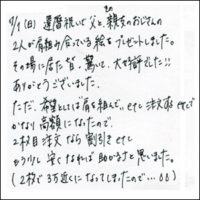 9/1(日) 還暦祝いで父と親友のおじさんの
2人が肩組み合っている絵をプレゼントしました。
その場に居た皆、驚いて、大好評でした!!
ありがとうございました。
ただ、希望としては「肩を組んで」etc 注文 etcで
かなり高額になったので、
2枚目注文なら割引き etc
もう少し安くなれば助かるナと思いました。
(2枚で3万近くになってしまったので…